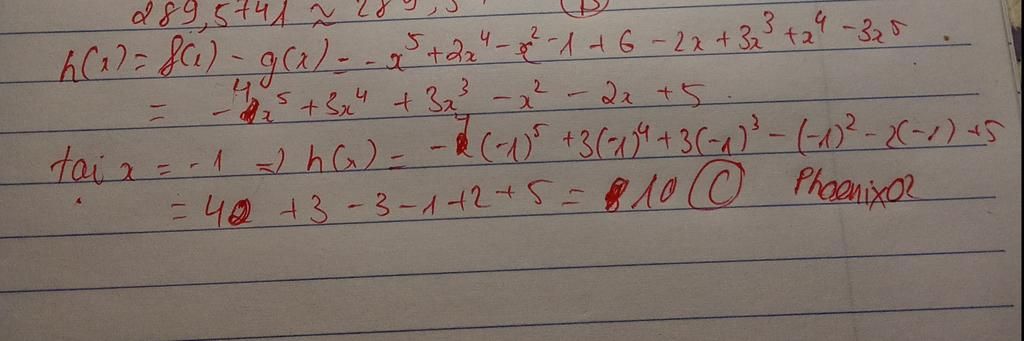 289,5741 ≈ 289,5 (B)
h(x) = f(x) - g(x) = -x⁵ + 2x⁴ - x² - 1 + 6 - 2x + 3x³ + x⁴ - 3x⁵
= -4x⁵ + 3x⁴ + 3x³ - x² - 2x + 5.
tai x = -1 => h(x) = -4(-1)⁵ + 3(-1)⁴ + 3(-1)³ - (-1)² - 2(-1) + 5
= 4 + 3 - 3 - 1 + 2 + 5 = 10 (C) Phoenix02